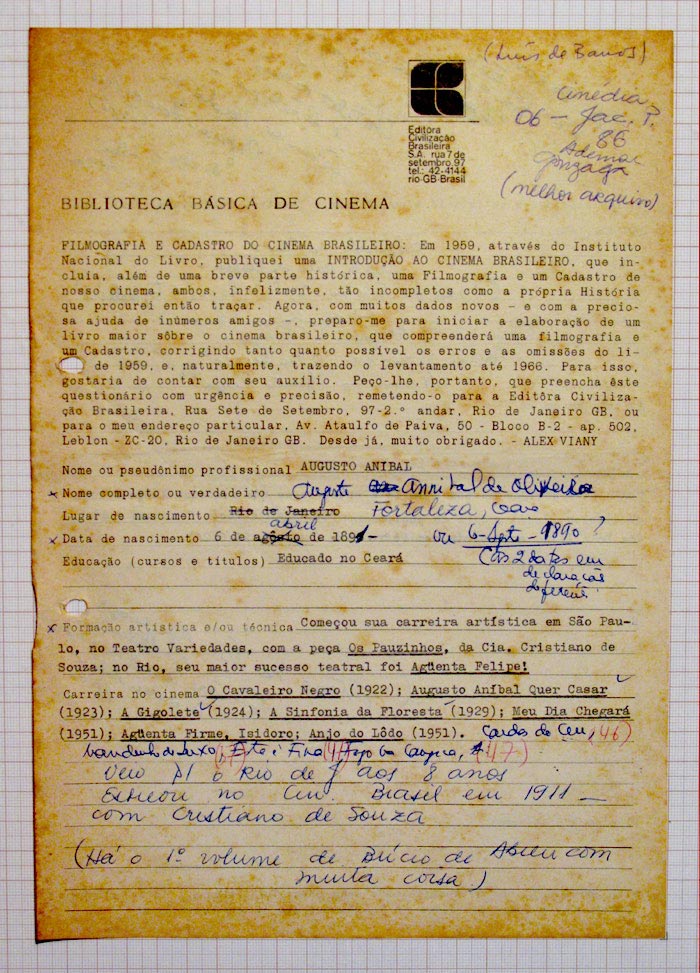 (Luis de Barros)
Cinédia
06 - Jac. P.
86
Ademar
Gonzaga
(melhor arquivo)
Editôra
Civilização
Brasileira
S.A. rua 7 de
setembro, 97
tel.: 42-4144
rio-GB-Brasil
BIBLIOTECA BÁSICA DE CINEMA
FILMOGRAFIA E CADASTRO DO CINEMA BRASILEIRO: Em 1959, através do Instituto
Nacional do Livro, publiquei uma INTRODUÇÃO AO CINEMA BRASILEIRO, que in-
cluia, além de uma breve parte histórica, uma Filmografia e um Cadastro de
nosso cinema, ambos, infelizmente, tão incompletos como a própria História
que procurei então traçar. Agora, com muitos dados novos - e com a precio-
sa ajuda de inúmeros amigos -, preparo-me para iniciar a elaboração de um
livro maior sôbre o cinema brasileiro, que compreenderá uma filmografia e
um Cadastro, corrigindo tanto quanto possível os erros e as omissões do li-
de 1959, e, naturalmente, trazendo o levantamento até 1966. Para isso,
gostaria de contar com seu auxílio. Peço-lhe, portanto, que preencha êste
questionário com urgência e precisão, remetendo-o para a Editôra Civiliza-
ção Brasileira, Rua Sete de Setembro, 97-2.º andar, Rio de Janeiro GB, ou
para o meu endereço particular, Av. Ataulfo de Paiva, 50 - Bloco B-2 - ap. 502,
Leblon - ZC-20, Rio de Janeiro GB. Desde já, muito obrigado. - ALEX VIANY
Nome ou pseudônimo profissional AUGUSTO ANIBAL
x Nome completo ou verdadeiro Augusto Annibal de Oliveira
Lugar de nascimento Rio de Janeiro Fortaleza, Ceará
abril
x Data de nascimento 6 de agôsto de 1891- ou 6-Agto-1890?
Educação (cursos e títulos) Educado no Ceará (as 2 datas em
declarações
diferentes
x Formação artística e/ou técnica Começou sua carreira artística em São Pau-
lo, no Teatro Variedades, com a peça Os Pauzinhos, da Cia. Cristiano de
Souza; no Rio, seu maior sucesso teatral foi Agüenta Felipe!
Carreira no cinema O Cavaleiro Negro (1922); Augusto Aníbal Quer Casar
(1923); A Gigolete (1924); A Sinfonia da Floresta (1929); Meu Dia Chegará
(1951); Agüenta Firme, Isidoro; Anjo do Lôdo (1951). Caídos do Céu, (46)
Este é Fino (47)
Veio p/ o Rio de J aos 8 anos
Estreou no Cin. Brasil em 1911 -
com Cristiano de Souza
(Há o 1º volume de Brício de Abreu com
muita coisa)